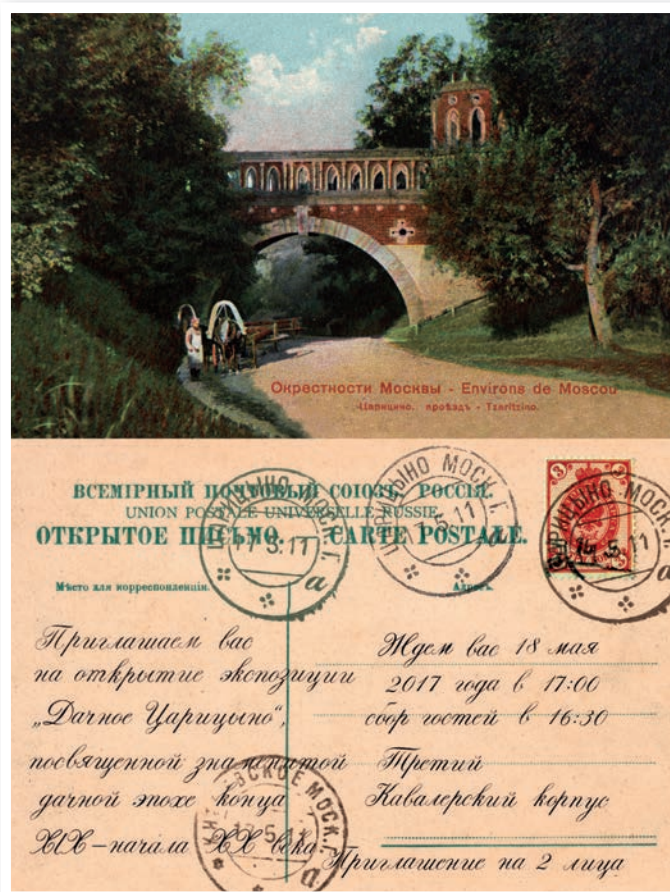 Окрестности Москвы - Environs de Moscou
Царицино. проѣздъ - Tzaritzino.
ВСЕМІРНЫЙ ПОЧТОВЫЙ СОЮЗЪ. РОССІЯ.
UNION POSTALE UNIVERSELLE RUSSIE
ОТКРЫТОЕ ПИСЬМО. — CARTE POSTALE.
ЦАРИЦЫНО МОСК. Г.
17 5.11
а
ЦАРИЦЫНО МОСК. Г.
17 5.11
а
3
3
ЦАРИЦЫНО МОСК. Г.
5.11
а
Мѣсто для корреспонденціи.
Адресъ.
Приглашаем вас
на открытие экспозиции
„Дачное Царицыно“,
посвященной знаменитой
дачной эпохе конца
XIX – начала XX века.
Ждем вас 18 мая
2017 года в 17:00
сбор гостей в 16:30
Третий
Кавалерский корпус
Приглашение на 2 лица
МОСК. Г.